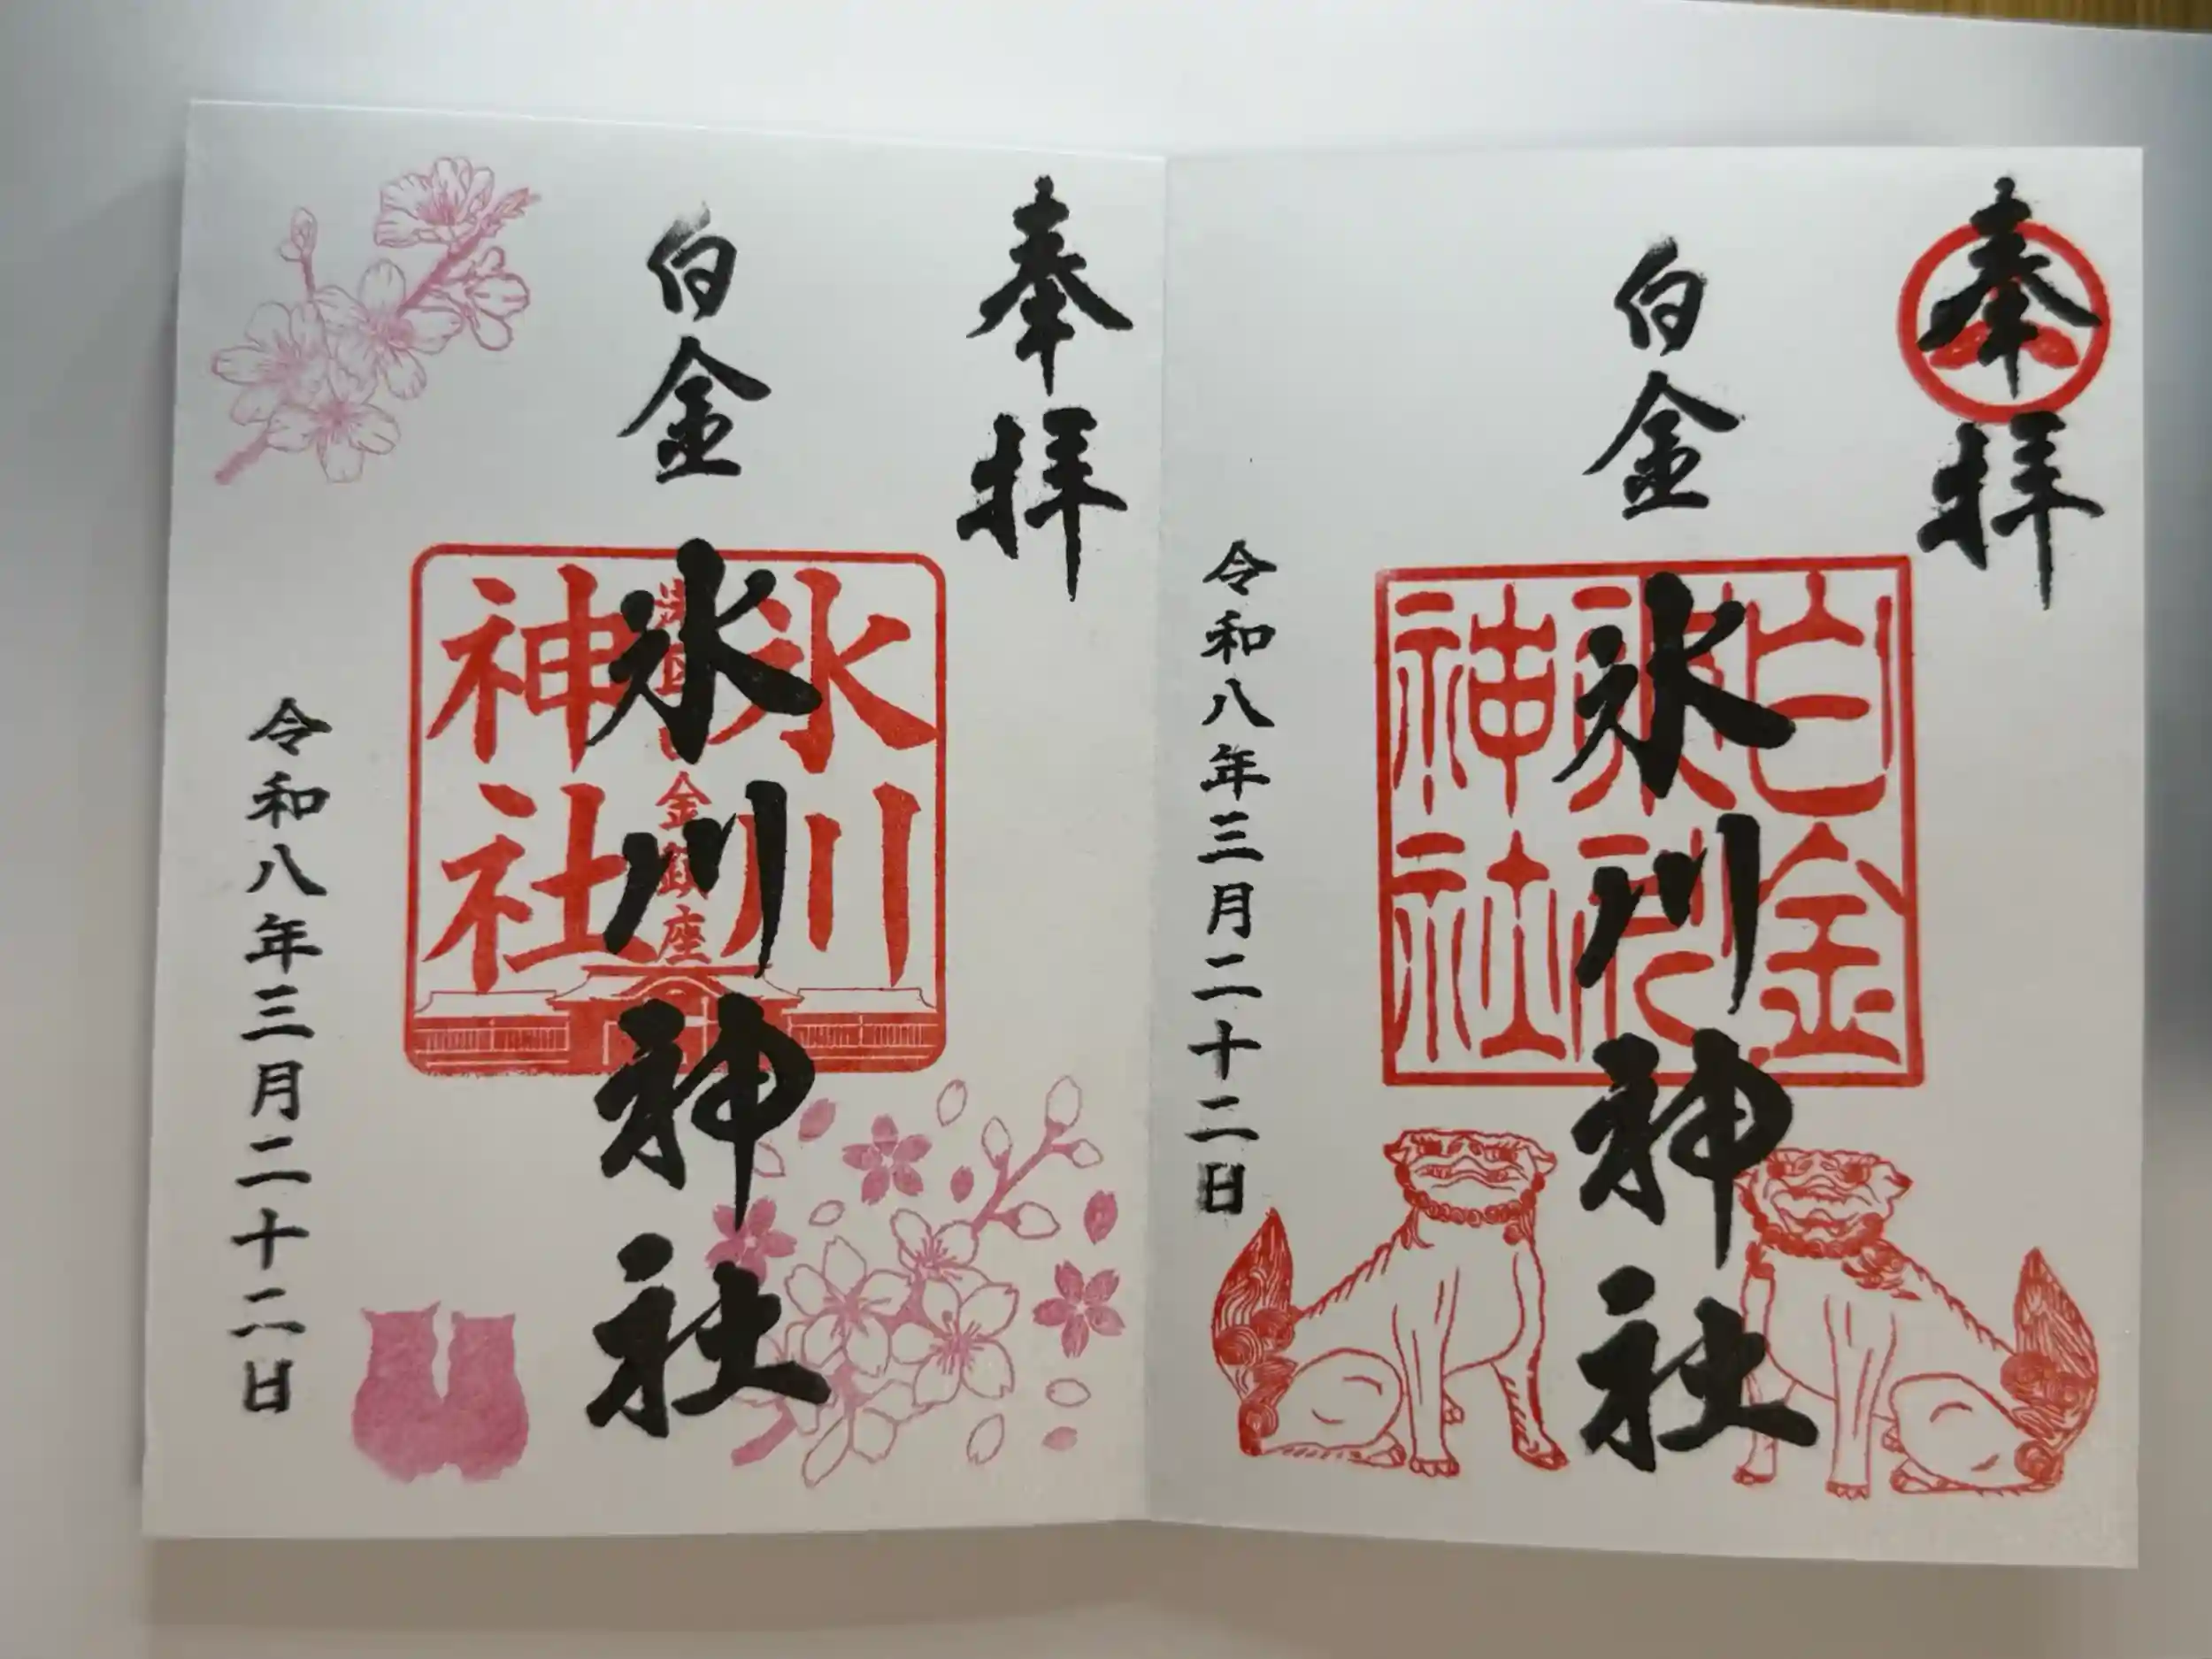 奉拝
白金
氷川神社
白金
氷川
神社
令和八年三月二十二日
奉拝
白金
氷川神社
氷川
金鎮座
神社
令和八年三月二十二日